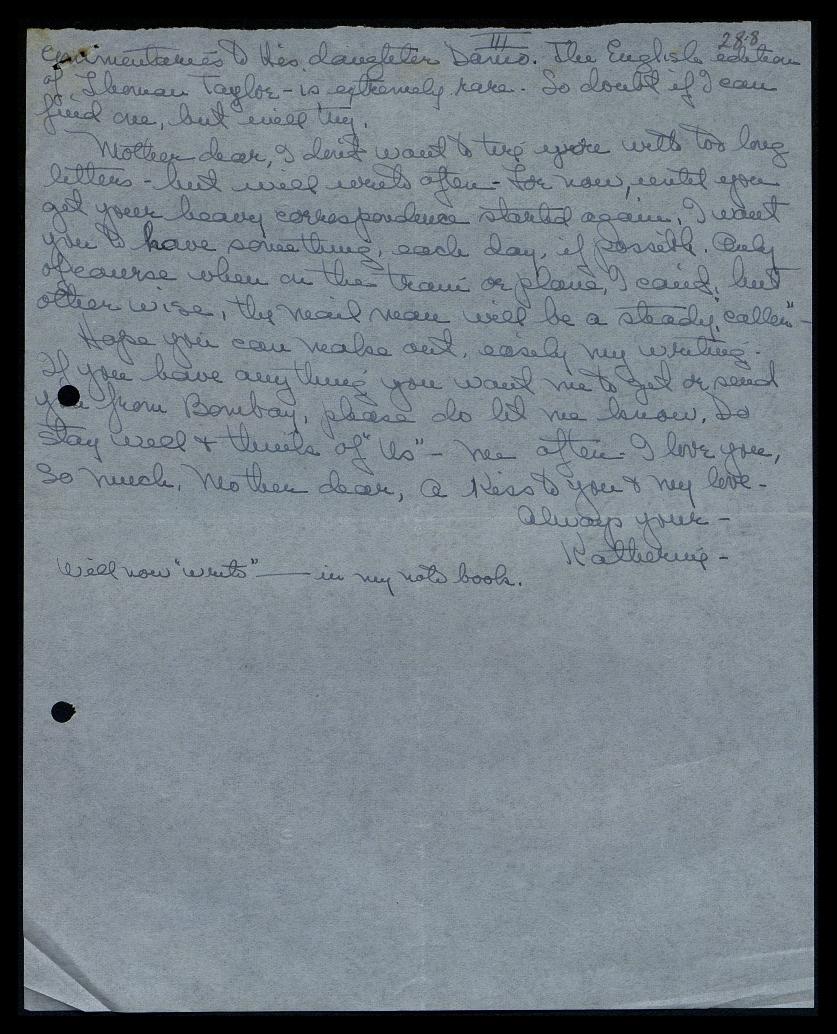 III
28.8
commentaries to His daughter Damo. The English edition
of Thomas Taylor - is extremely rare. So doubt if I can
find one, but will try.
Mother dear, I don't want to tire you with too long
letters - but will write often - for now, until you
get your heavy correspondence started again, I want
you to have something, each day, if possible. Only
of course when on the train or plane, I can't, but
otherwise, the mail man will be a steady "caller" -
Hope you can make out, easily my writing.
If you have anything you want me to get or send
you from Bombay, please do let me know. Do
stay well & think of "Us" - me often - I love you,
so much, Mother dear, a kiss to you & my love -
Always your -
Katherine -
Will now "write" — in my note book.